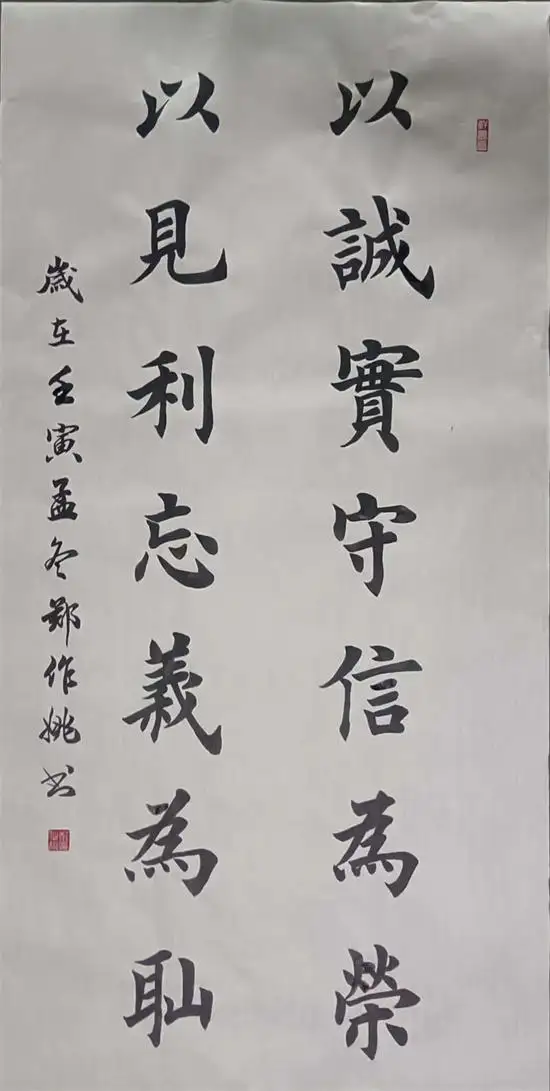 以誠實守信為榮
以見利忘義為耻
歲在壬寅孟冬鄭作姚书